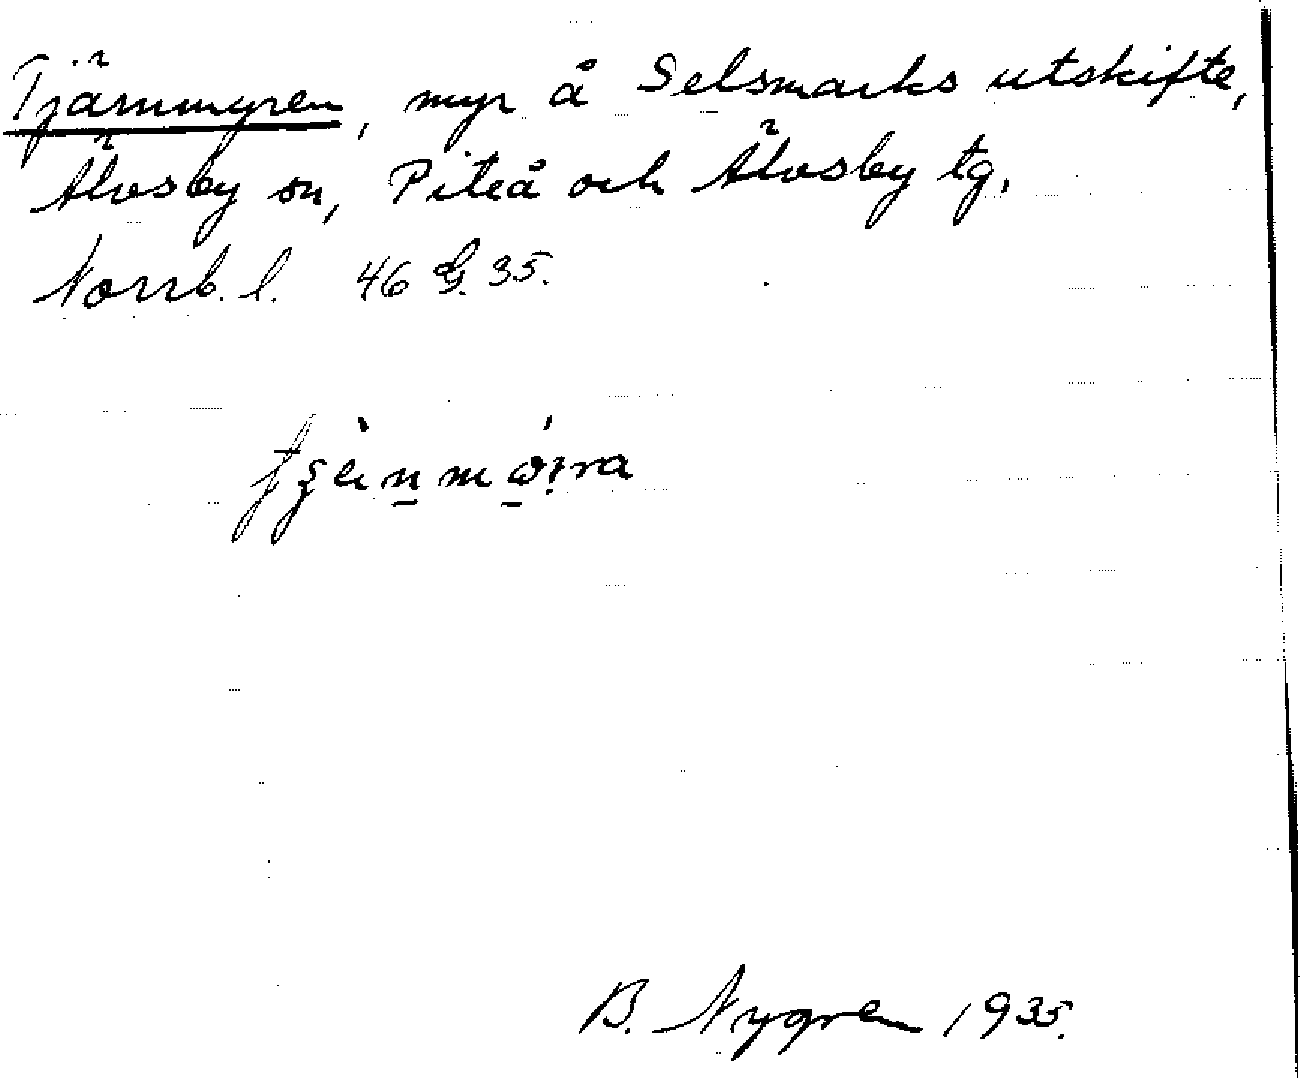 Tjärnmyren, myr å Selsmarks utskifte,
Älvsby sn, Piteå och Älvsby tg.
Norrb. l. 46 G. 35.
B. Nygren 1935.